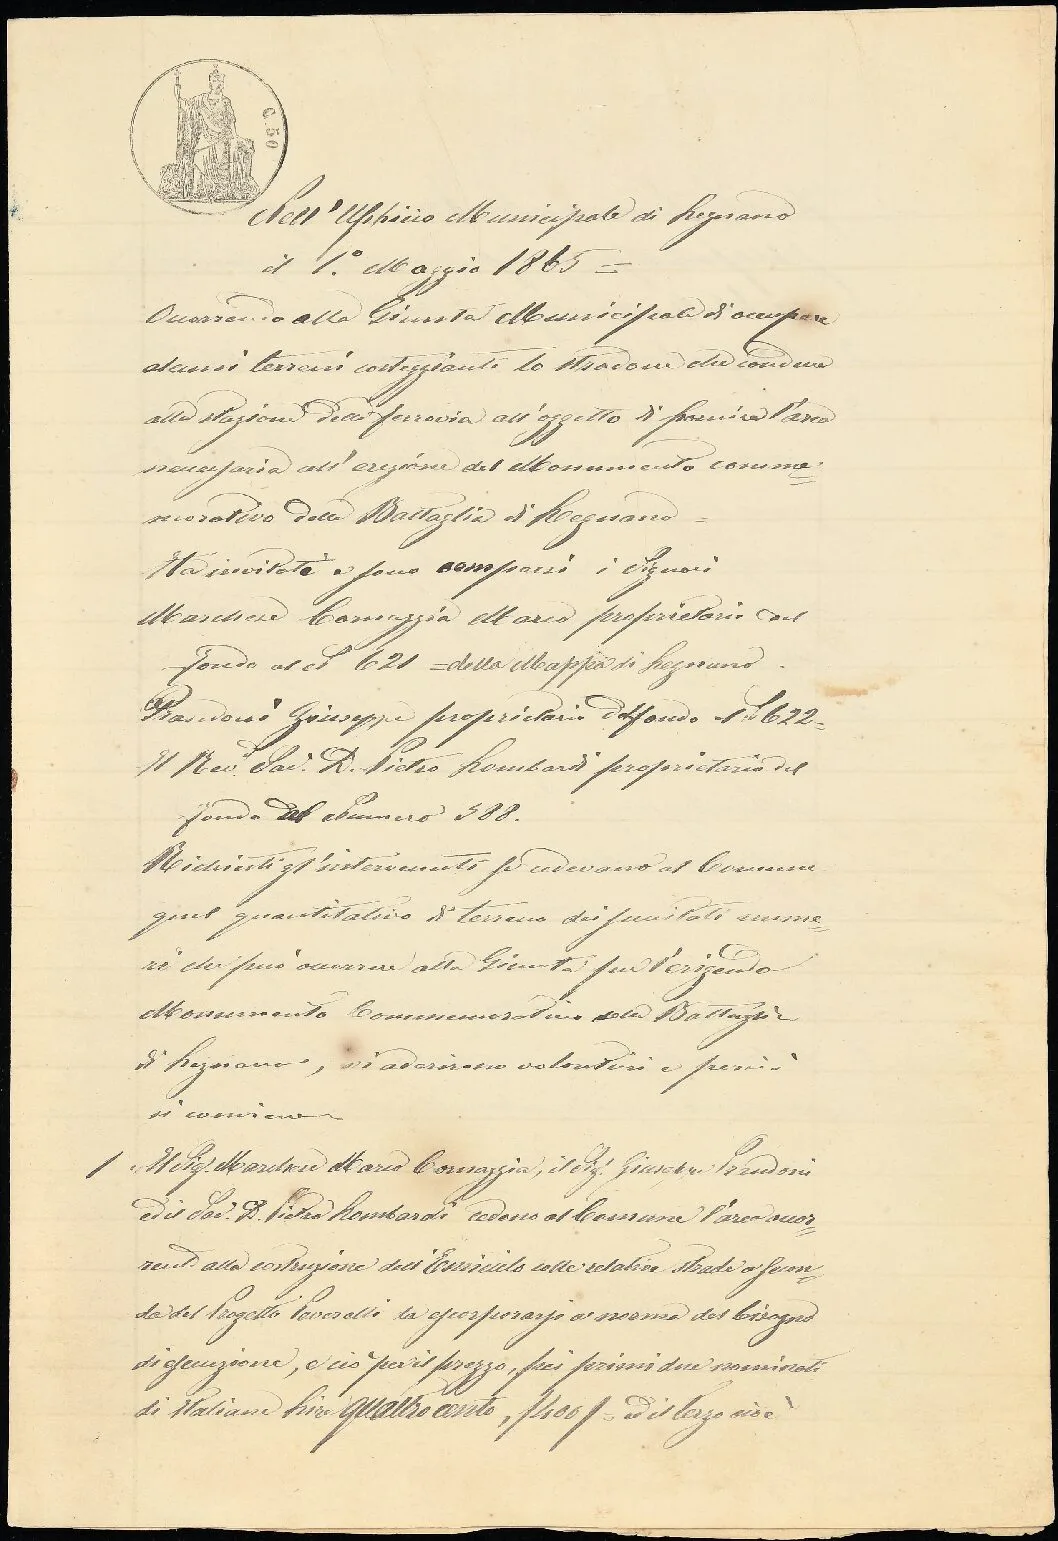 C. 50
Nell' Uffizio Municipale di Legnano
il 1.° Maggio 1865 =
Occorrendo alla Giunta Municipale di occupare
alcuni terreni costeggianti lo stradone che conduce
alla stazione della ferrovia all'oggetto di fornire l'area
necessaria all' erezione del Monumento comme=
morativo della Battaglia di Legnano =
Ha invitati e sono comparsi i Signori
Marchese Cornaggia Marco proprietario del
fondo al N. 621 = della Mappa di Legnano.
Prandoni Giuseppe proprietario del fondo al N. 622 =
Il Rev. Sac. D. Pietro Lombardi proprietario del
fondo al Numero 588.
Richiesti gl'intervenuti se cedevano al Comune
quel quantitativo di terreno dei sucitati nume=
ri che può occorrere alla Giunta per l'erigendo
Monumento Commemorativo della Battaglia
di Legnano, vi aderirono volontieri e perciò
si conviene
1 Il Sig. Marchese Marco Cornaggia, il Sig. Giuseppe Prandoni
ed il Sac. D. Pietro Lombardi cedono al Comune l'area occor=
rente alla costruzione dell' Emiciclo colle relative strade a secon=
da del Progetto Poveralli da escorporarsi a norma del bisogno
di esecuzione, e ciò per il prezzo, pei primi due nominati
di Italiane Lire quattrocento, £ 400 £ = ed il terzo cioè